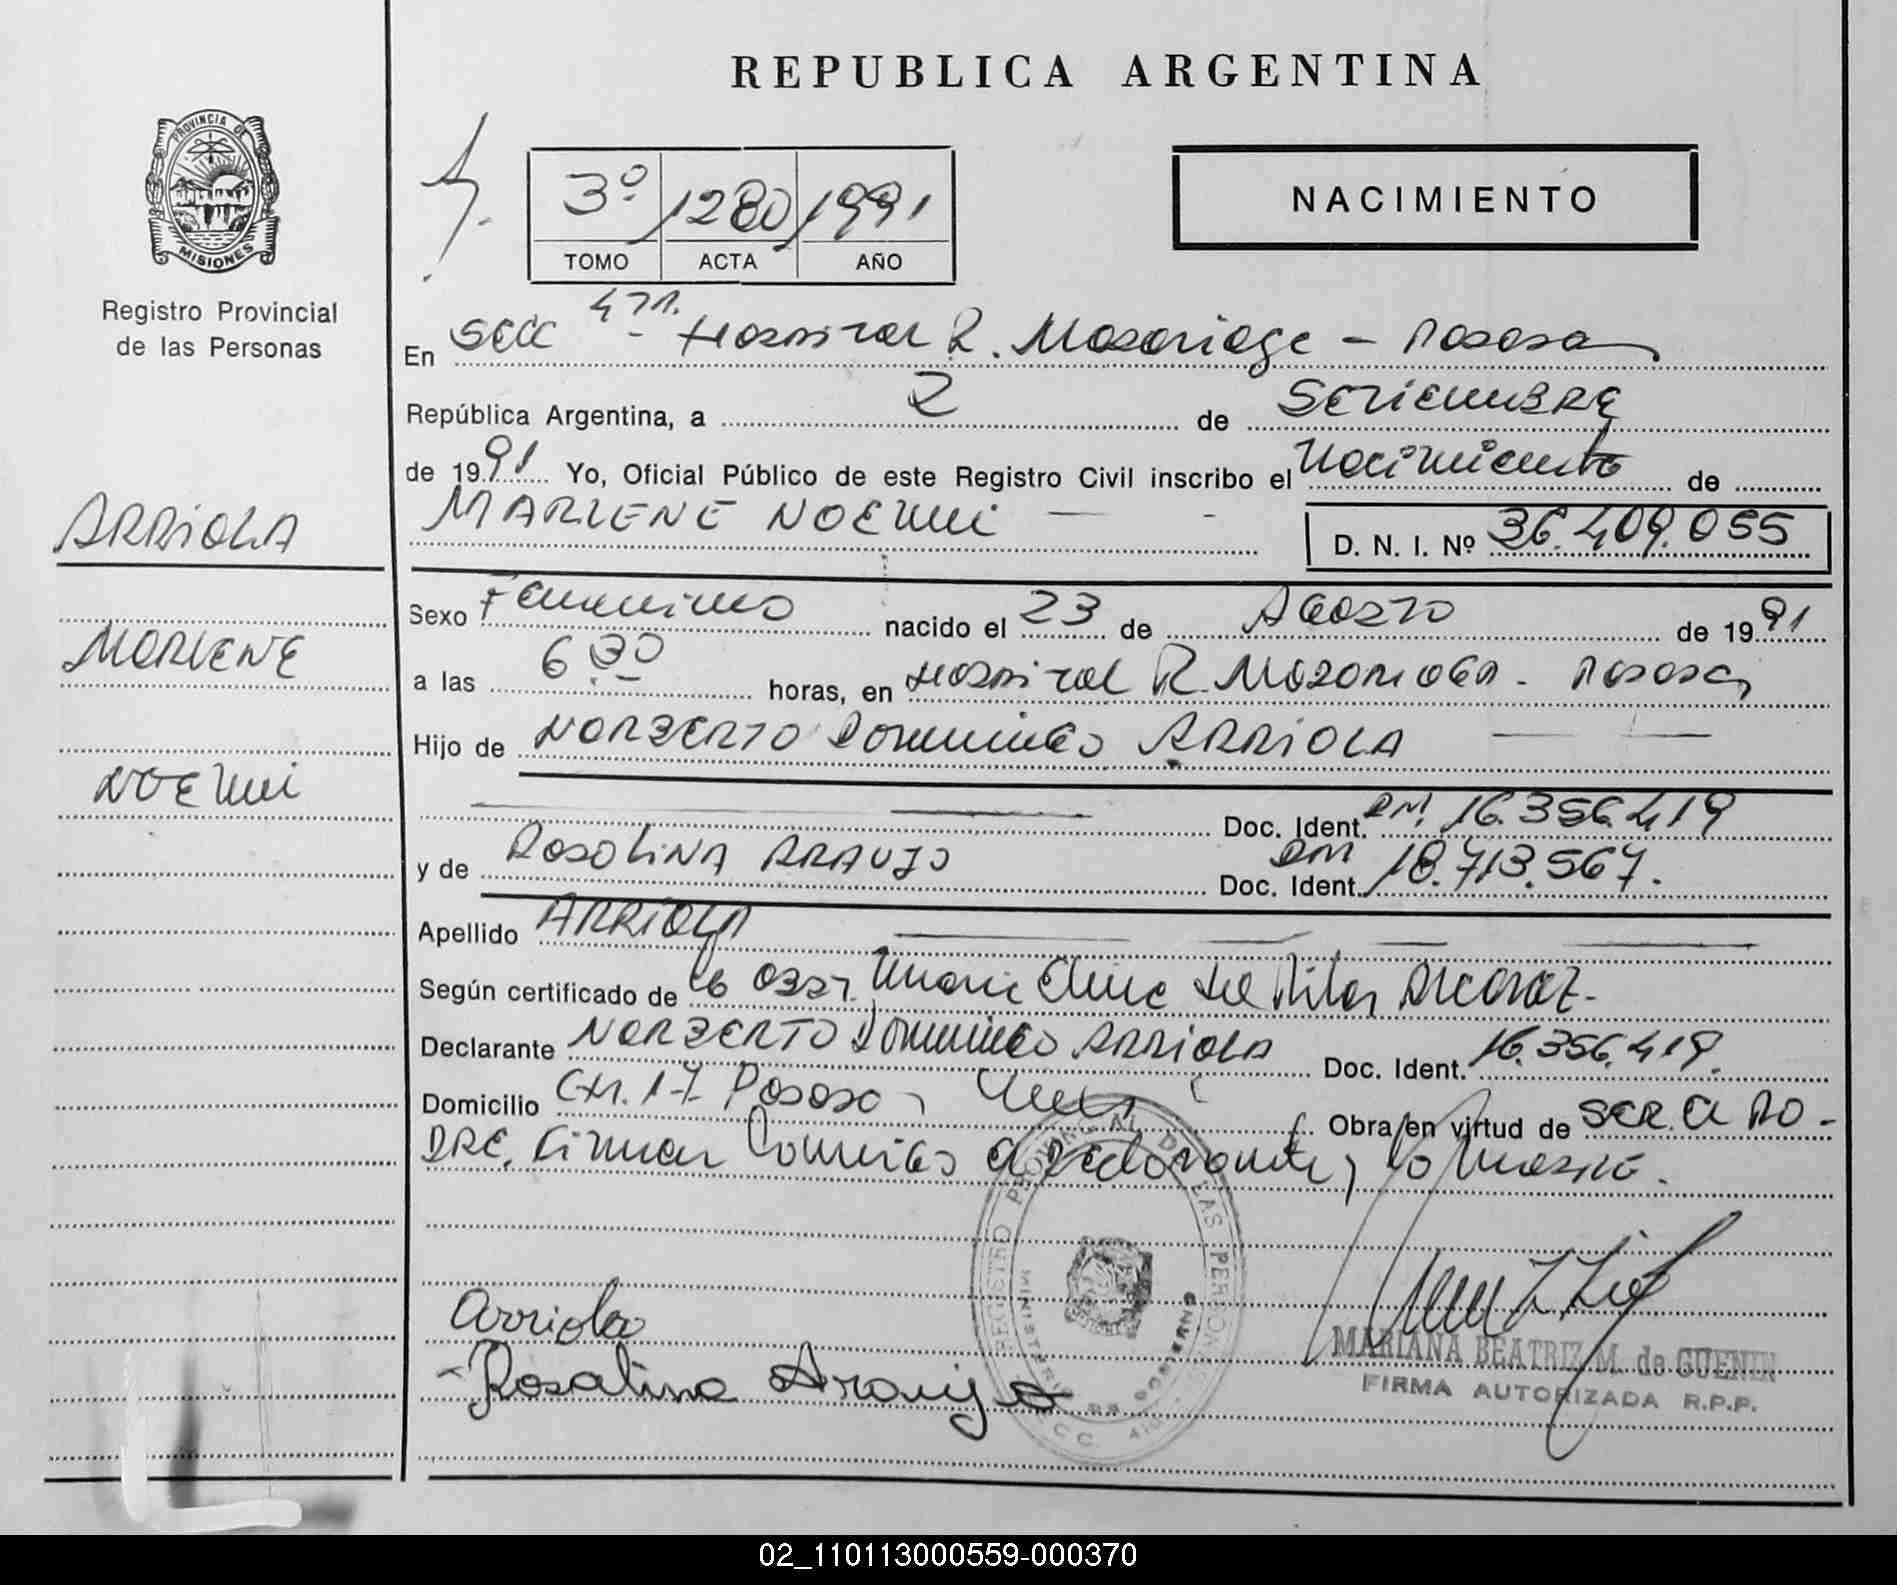 REPUBLICA ARGENTINA
PROVINCIA DE
MISIONES
Registro Provincial
de las Personas
3º 1280 1991
TOMO ACTA AÑO
NACIMIENTO
En Hospital R. - Posadas
República Argentina, a 2 de SETIEMBRE
de 1991 Yo, Oficial Público de este Registro Civil inscribo el Nacimiento de
MARLENE NOEMI
D. N. I. Nº 36.409.055
ARRIOLA
MARLENE
NOEMI
Sexo Femenino nacido el 23 de Agosto de 1991
a las 6 30 horas, en Hospital R. - Posadas
Hijo de NORBERTO DOMINGO ARRIOLA
Doc. Ident. DNI 16.356.419
y de ROSALINA ARAUJO Doc. Ident. DNI 18.713.567.
Apellido ARRIOLA
Según certificado de la Obst. Maria del Pilar
Declarante NORBERTO DOMINGO ARRIOLA Doc. Ident. 16.356.419.
Domicilio CH. 17 Posadas Obra en virtud de SER EL PA-
DRE. Firman Conmigo el declarante y la Madre.
REGISTRO PROVINCIAL DE LAS PERSONAS
MINISTERIO DE GOBIERNO
Arriola
Rosalina Araujo
MARIANA BEATRIZ M. de GUENIN
FIRMA AUTORIZADA R.P.P.
02_110113000559-000370